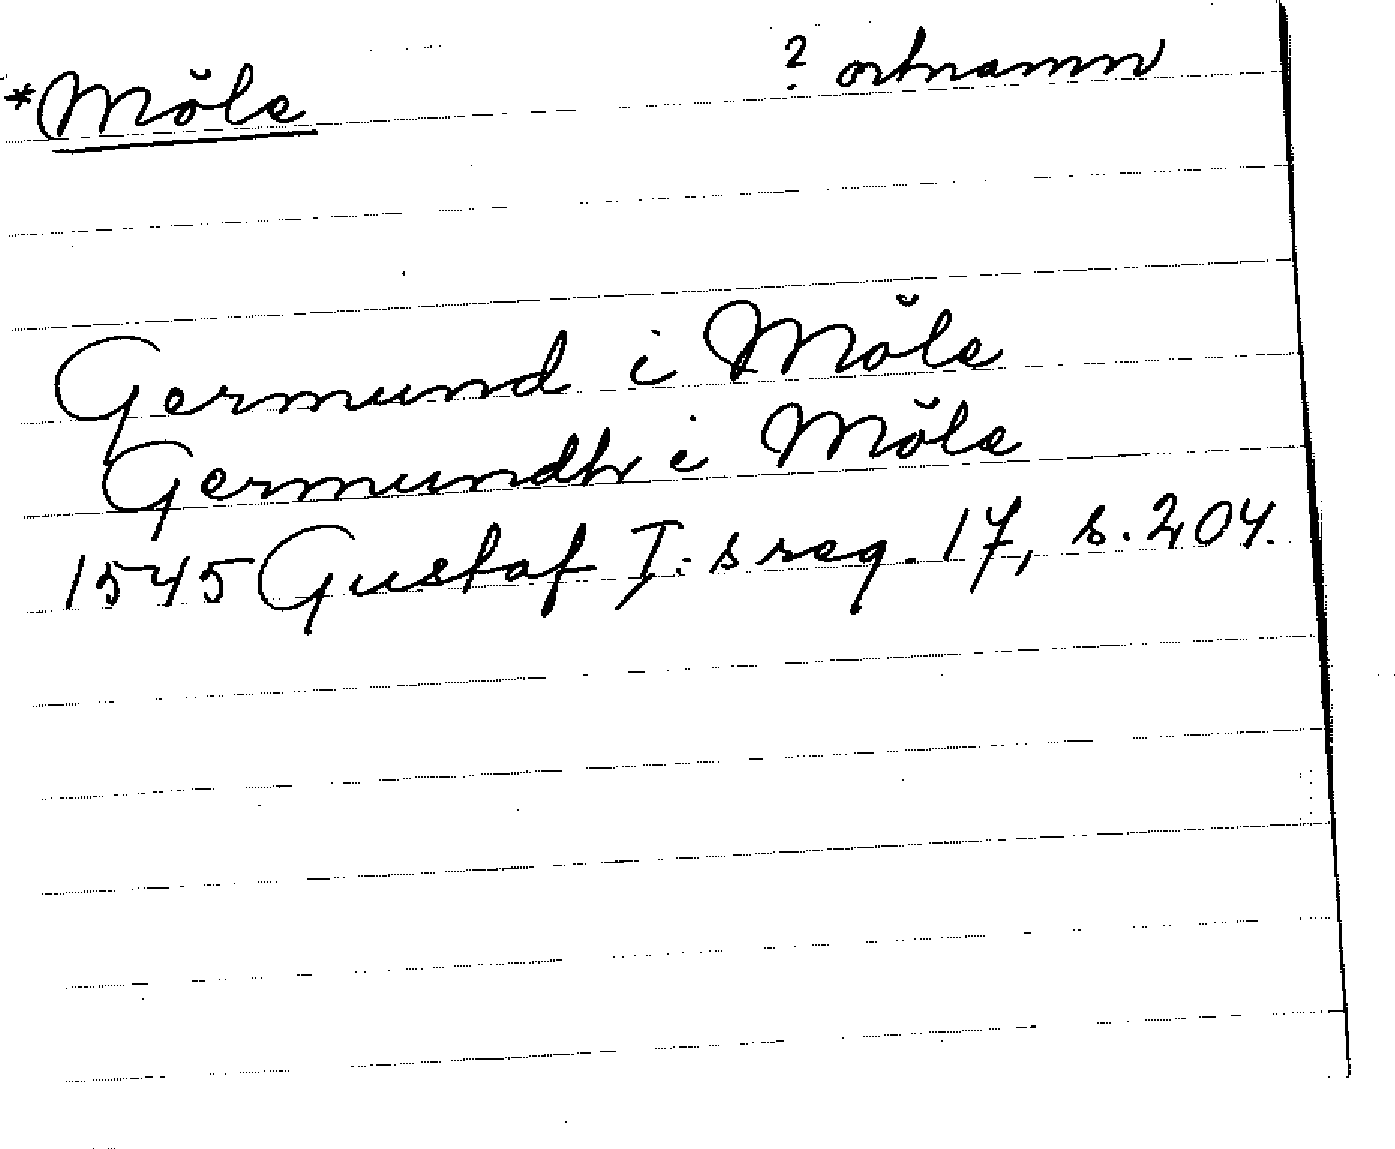 *Möle ? ortnamn
Germund i Möle
Germundh i Möle
1545 Gustaf I:s reg. 17, s. 204.